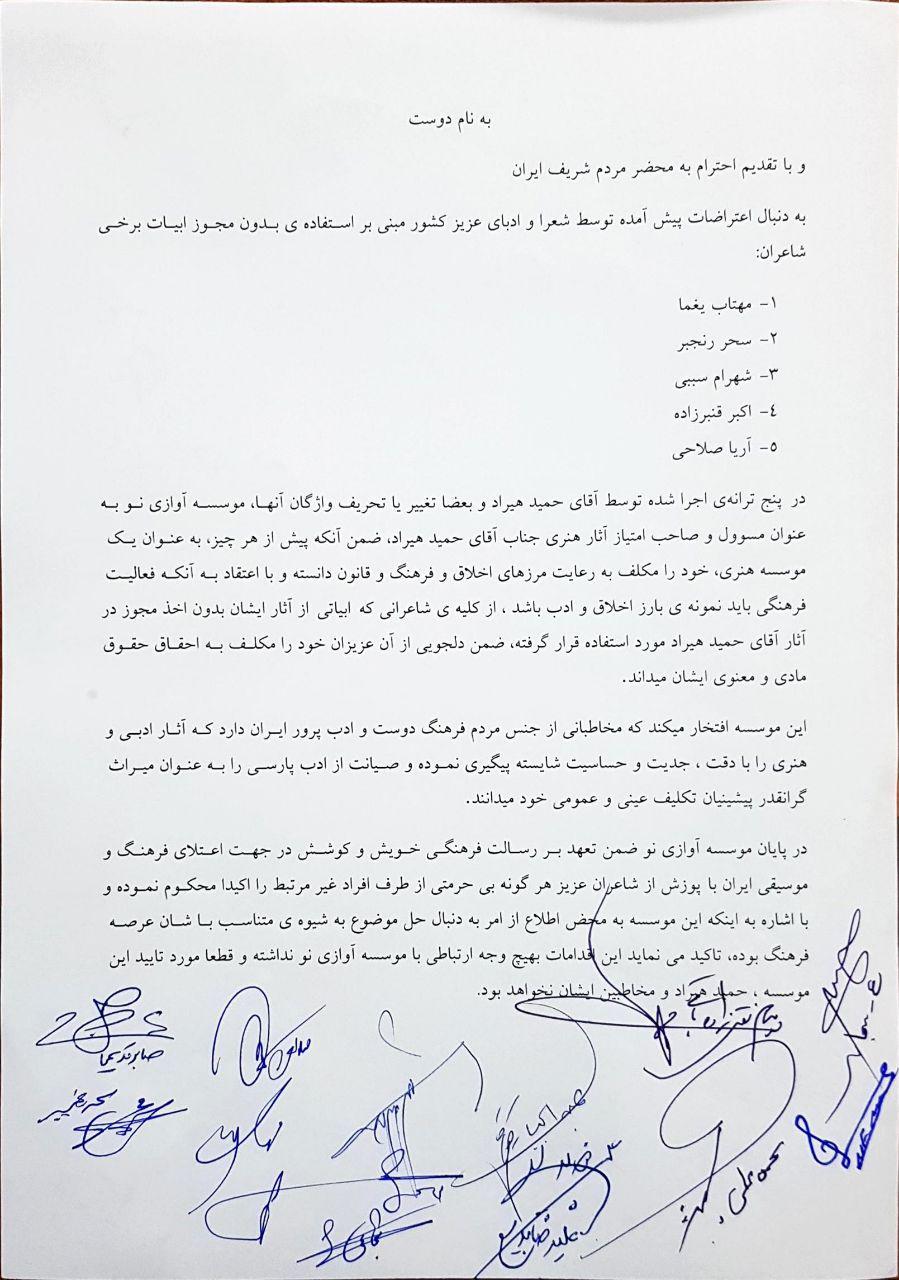 به نام دوست
و با تقدیم احترام به محضر مردم شریف ایران
به دنبال اعتراضات پیش آمده توسط شعرا و ادبای عزیز کشور مبنی بر استفاده ی بدون مجوز ابیات برخی
شاعران:
۱- مهتاب یغما
۲- سحر رنجبر
۳- شهرام سببی
٤- اکبر قنبرزاده
٥- آریا صلاحی
در پنج ترانه‌ی اجرا شده توسط آقای حمید هیراد و بعضا تغییر یا تحریف واژگان آنها، موسسه آوازی نو به
عنوان مسوول و صاحب امتیاز آثار هنری جناب آقای حمید هیراد، ضمن آنکه پیش از هر چیز، به عنوان یک
موسسه هنری، خود را مکلف به رعایت مرزهای اخلاق و فرهنگ و قانون دانسته و با اعتقاد به آنکه فعالیت
فرهنگی باید نمونه ی بارز اخلاق و ادب باشد ، از کلیه ی شاعرانی که ابیاتی از آثار ایشان بدون اخذ مجوز در
آثار آقای حمید هیراد مورد استفاده قرار گرفته، ضمن دلجویی از آن عزیزان خود را مکلف به احقاق حقوق
مادی و معنوی ایشان میداند.
این موسسه افتخار میکند که مخاطبانی از جنس مردم فرهنگ دوست و ادب پرور ایران دارد که آثار ادبی و
هنری را با دقت ، جدیت و حساسیت شایسته پیگیری نموده و صیانت از ادب پارسی را به عنوان میراث
گرانقدر پیشینیان تکلیف عینی و عمومی خود میدانند.
در پایان موسسه آوازی نو ضمن تعهد بر رسالت فرهنگی خویش و کوشش در جهت اعتلای فرهنگ و
موسیقی ایران با پوزش از شاعران عزیز هر گونه بی حرمتی از طرف افراد غیر مرتبط را اکیدا محکوم نموده و
با اشاره به اینکه این موسسه به محض اطلاع از امر به دنبال حل موضوع به شیوه ی متناسب با شان عرصه
فرهنگ بوده، تاکید می نماید این اقدامات بهیچ وجه ارتباطی با موسسه آوازی نو نداشته و قطعا مورد تایید این
موسسه ، حمید هیراد و مخاطبین ایشان نخواهد بود.